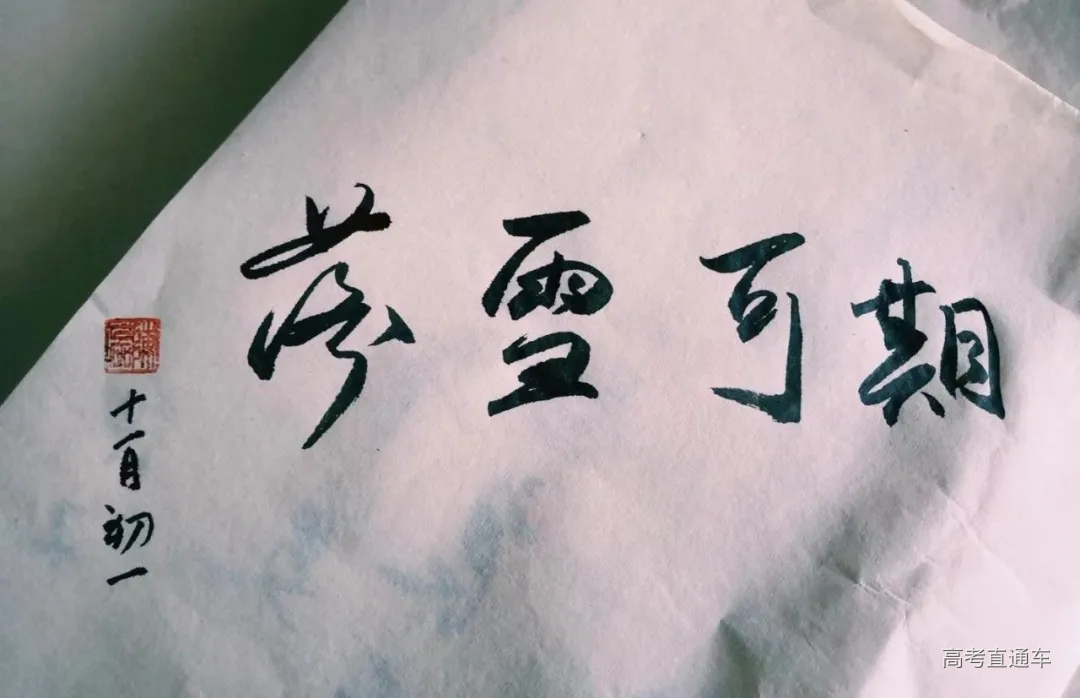 落雪可期
十一月初一
高考直通车